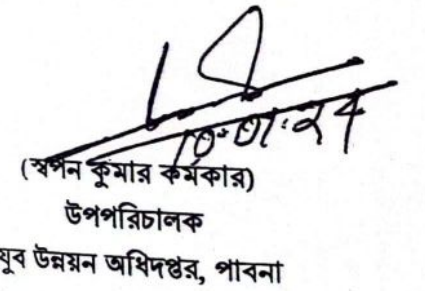 (স্বপন কুমার কর্মকার)
উপপরিচালক
যুব উন্নয়ন অধিদপ্তর, পাবনা